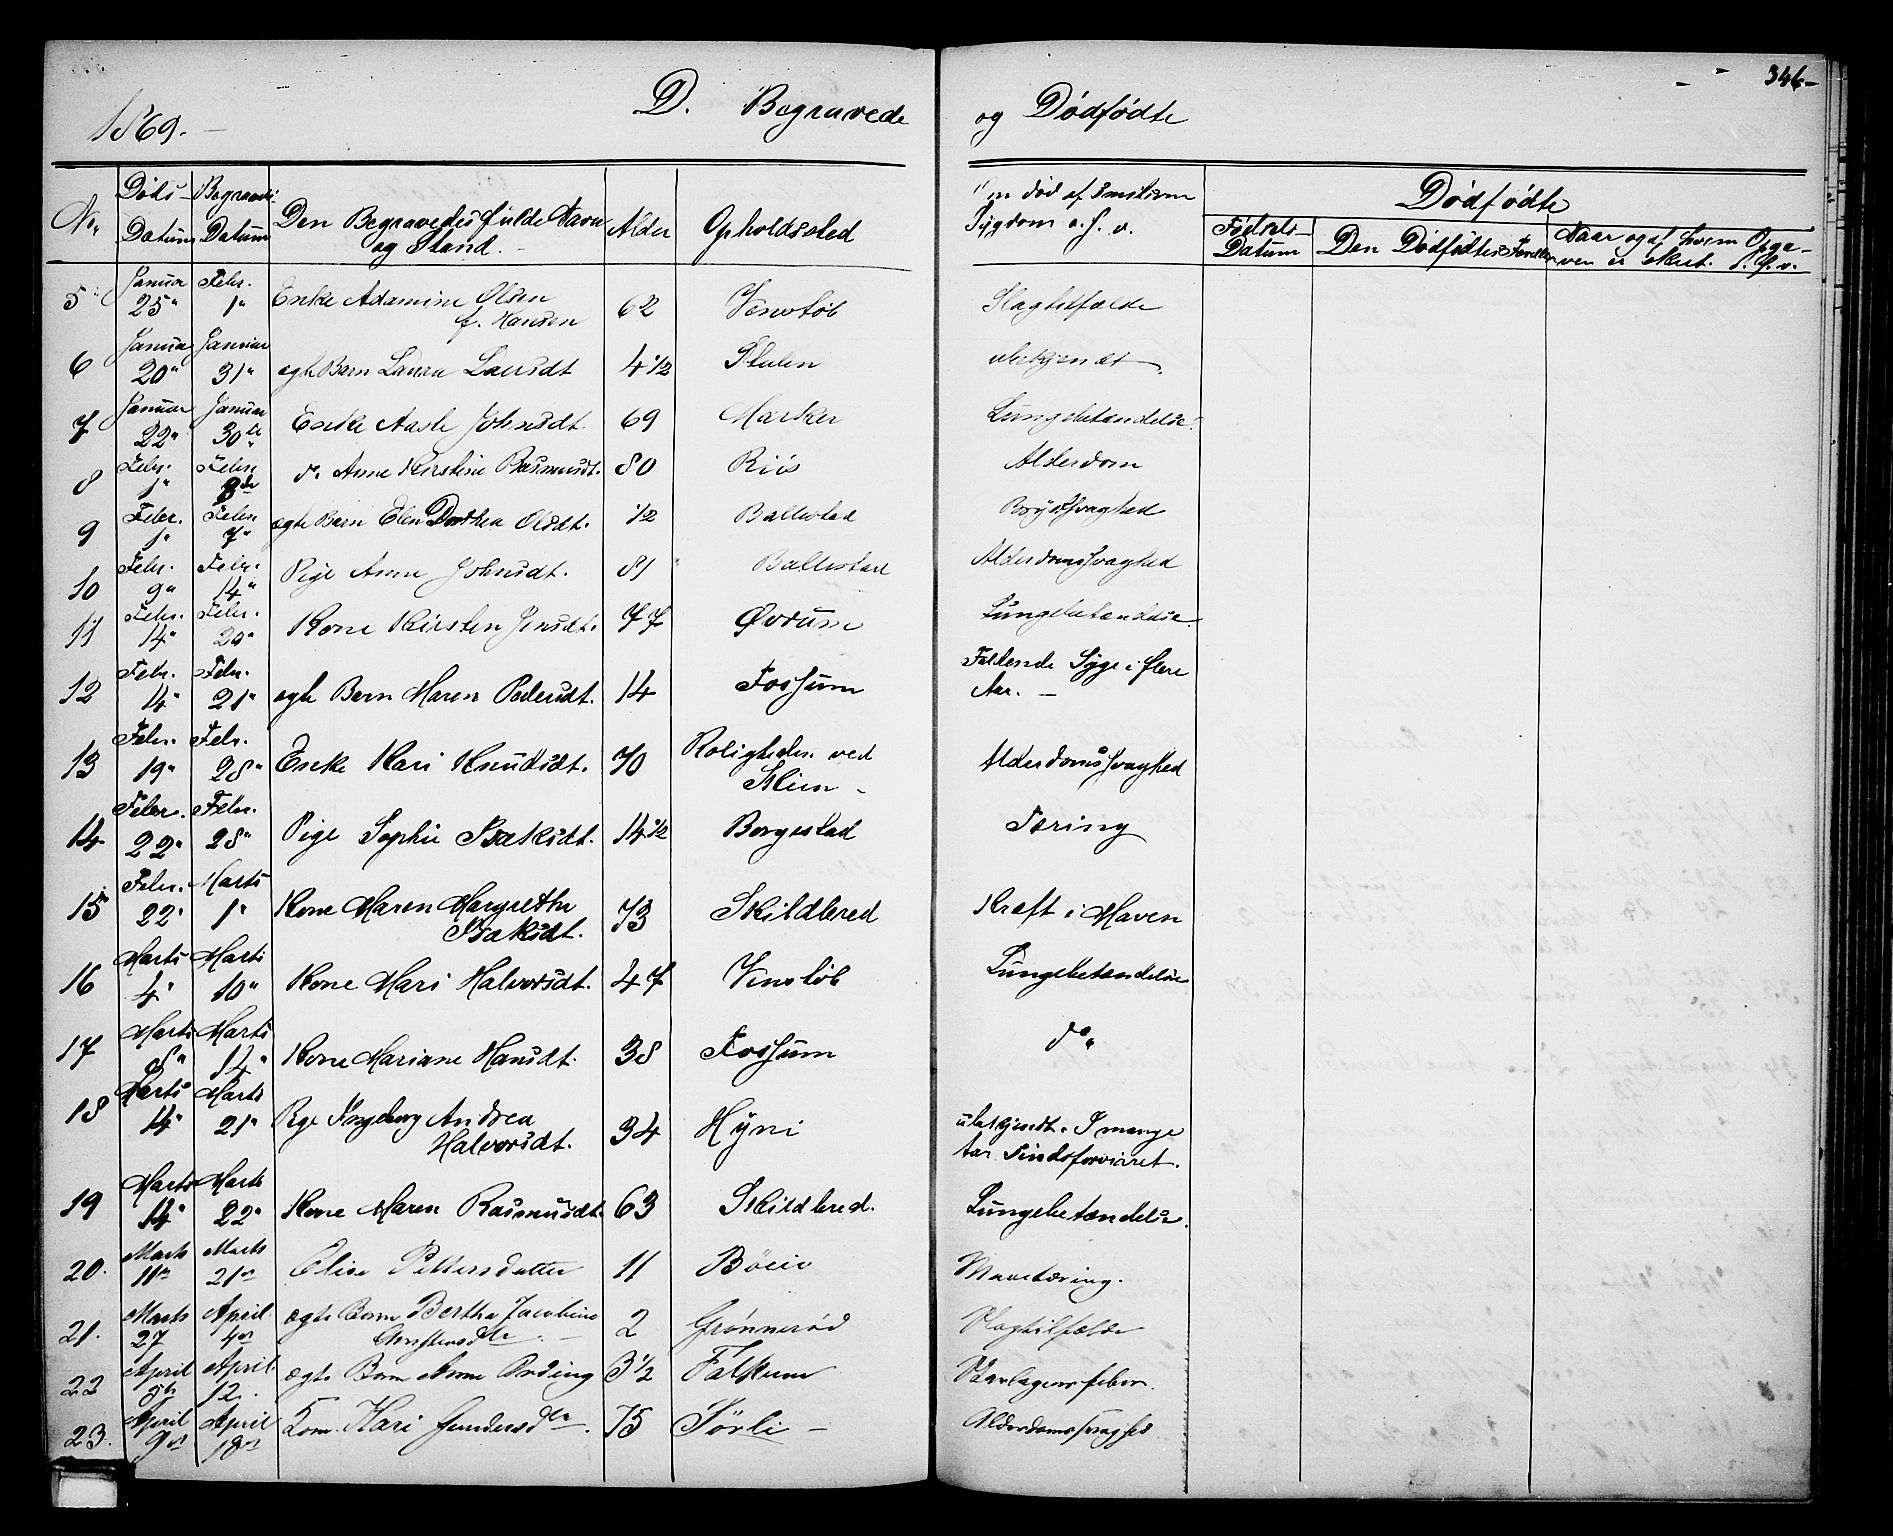 346-
1869.-
D. Begravede
og Dødfødte
No. Døds- Datum Begravels. Datum Den Begravedes fulde Navn og Stand. Alder Opholdssted
Om død af smitsom Sygdom o.s.v.
Dødfødte
Fødsels-Datum Den Dødfødtes Forældre Naar og af hvem Opgaven er skeet. o.s.v.
5 Januar 25" Febr. 1" Enke Adamine Olsen f. Hansen 62 Venstøb Slagtilfælde
6 Januar 20" Januar 31" ægte Barn Laura Larsdt 4 1/2 Stulen ubekjendt
7 Januar 22" Januar 30te Enke Aaste Johnsdt. 69 Marker Lungebetændelse.
8 Febr. 1" Febr. d. Anne Kirstine Rasmusdt. 80 Riis Alderdom
9 Febr. 1" Febr. 7" ægte Barn Elen Dorthea Olsdt. 1/2 Ballestad Brystsvaghed
10 Febr. 9" Febr. 14" Pige Anne Johnsdt. 81 Ballestad Alderdomssvaghed
11 Febr. 14" Febr. 20" Kone Kirsten Jensdt. 77 Øvrum Lungebetændelse.
12 Febr. 14" Febr. 21" ægte Barn Maren Pedersdt. 14 Fossum Faldende Syge i flere Aar. -
13 Febr. 19" Febr. 28" Enke Kari Knudsdt. 70 Roligheden ved Skien - Alderdomssvaghed
14 Febr. 22" Febr. 28" Pige Sophie Isaksdt. 14 1/2 Borgestad Tæring
15 Febr. 22" Marts 1" Kone Maren Margrethe Isaksdt. 73 Skildbred Kræft i Maven
16 Marts 4" Marts 10" Kone Mari Halvorsdt. 47 Venstøb Lungebetændelse
17 Marts 8" Marts 14" Kone Mariane Hansdt. 38 Fossum do"
18 Marts 14" Marts 21" Pige Ingeborg Andrea Halvorsdt. 34 Hyni ubekjendt. I mange Aar Sindsforvirret.
19 Marts 14" Marts 22" Kone Maren Rasmusdt. 63 Skildbred. Lungebetændelse.
20. Marts 11" Marts 21" Elise Pettersdatter 11 Mavetæring.
21. Marts 27 April 4" ægte Barn Bertha Jacobine Christensdtr. - 2 Grønnerød Slagtilfælde
22 April 5" April 12. ægte Barn Anne Ording 3 1/2 Falkum Skarlagensfeber.
23. April 9" April 18" Kone Kari Gundersdtr. 75 Sørli - Alderdomssvaghed